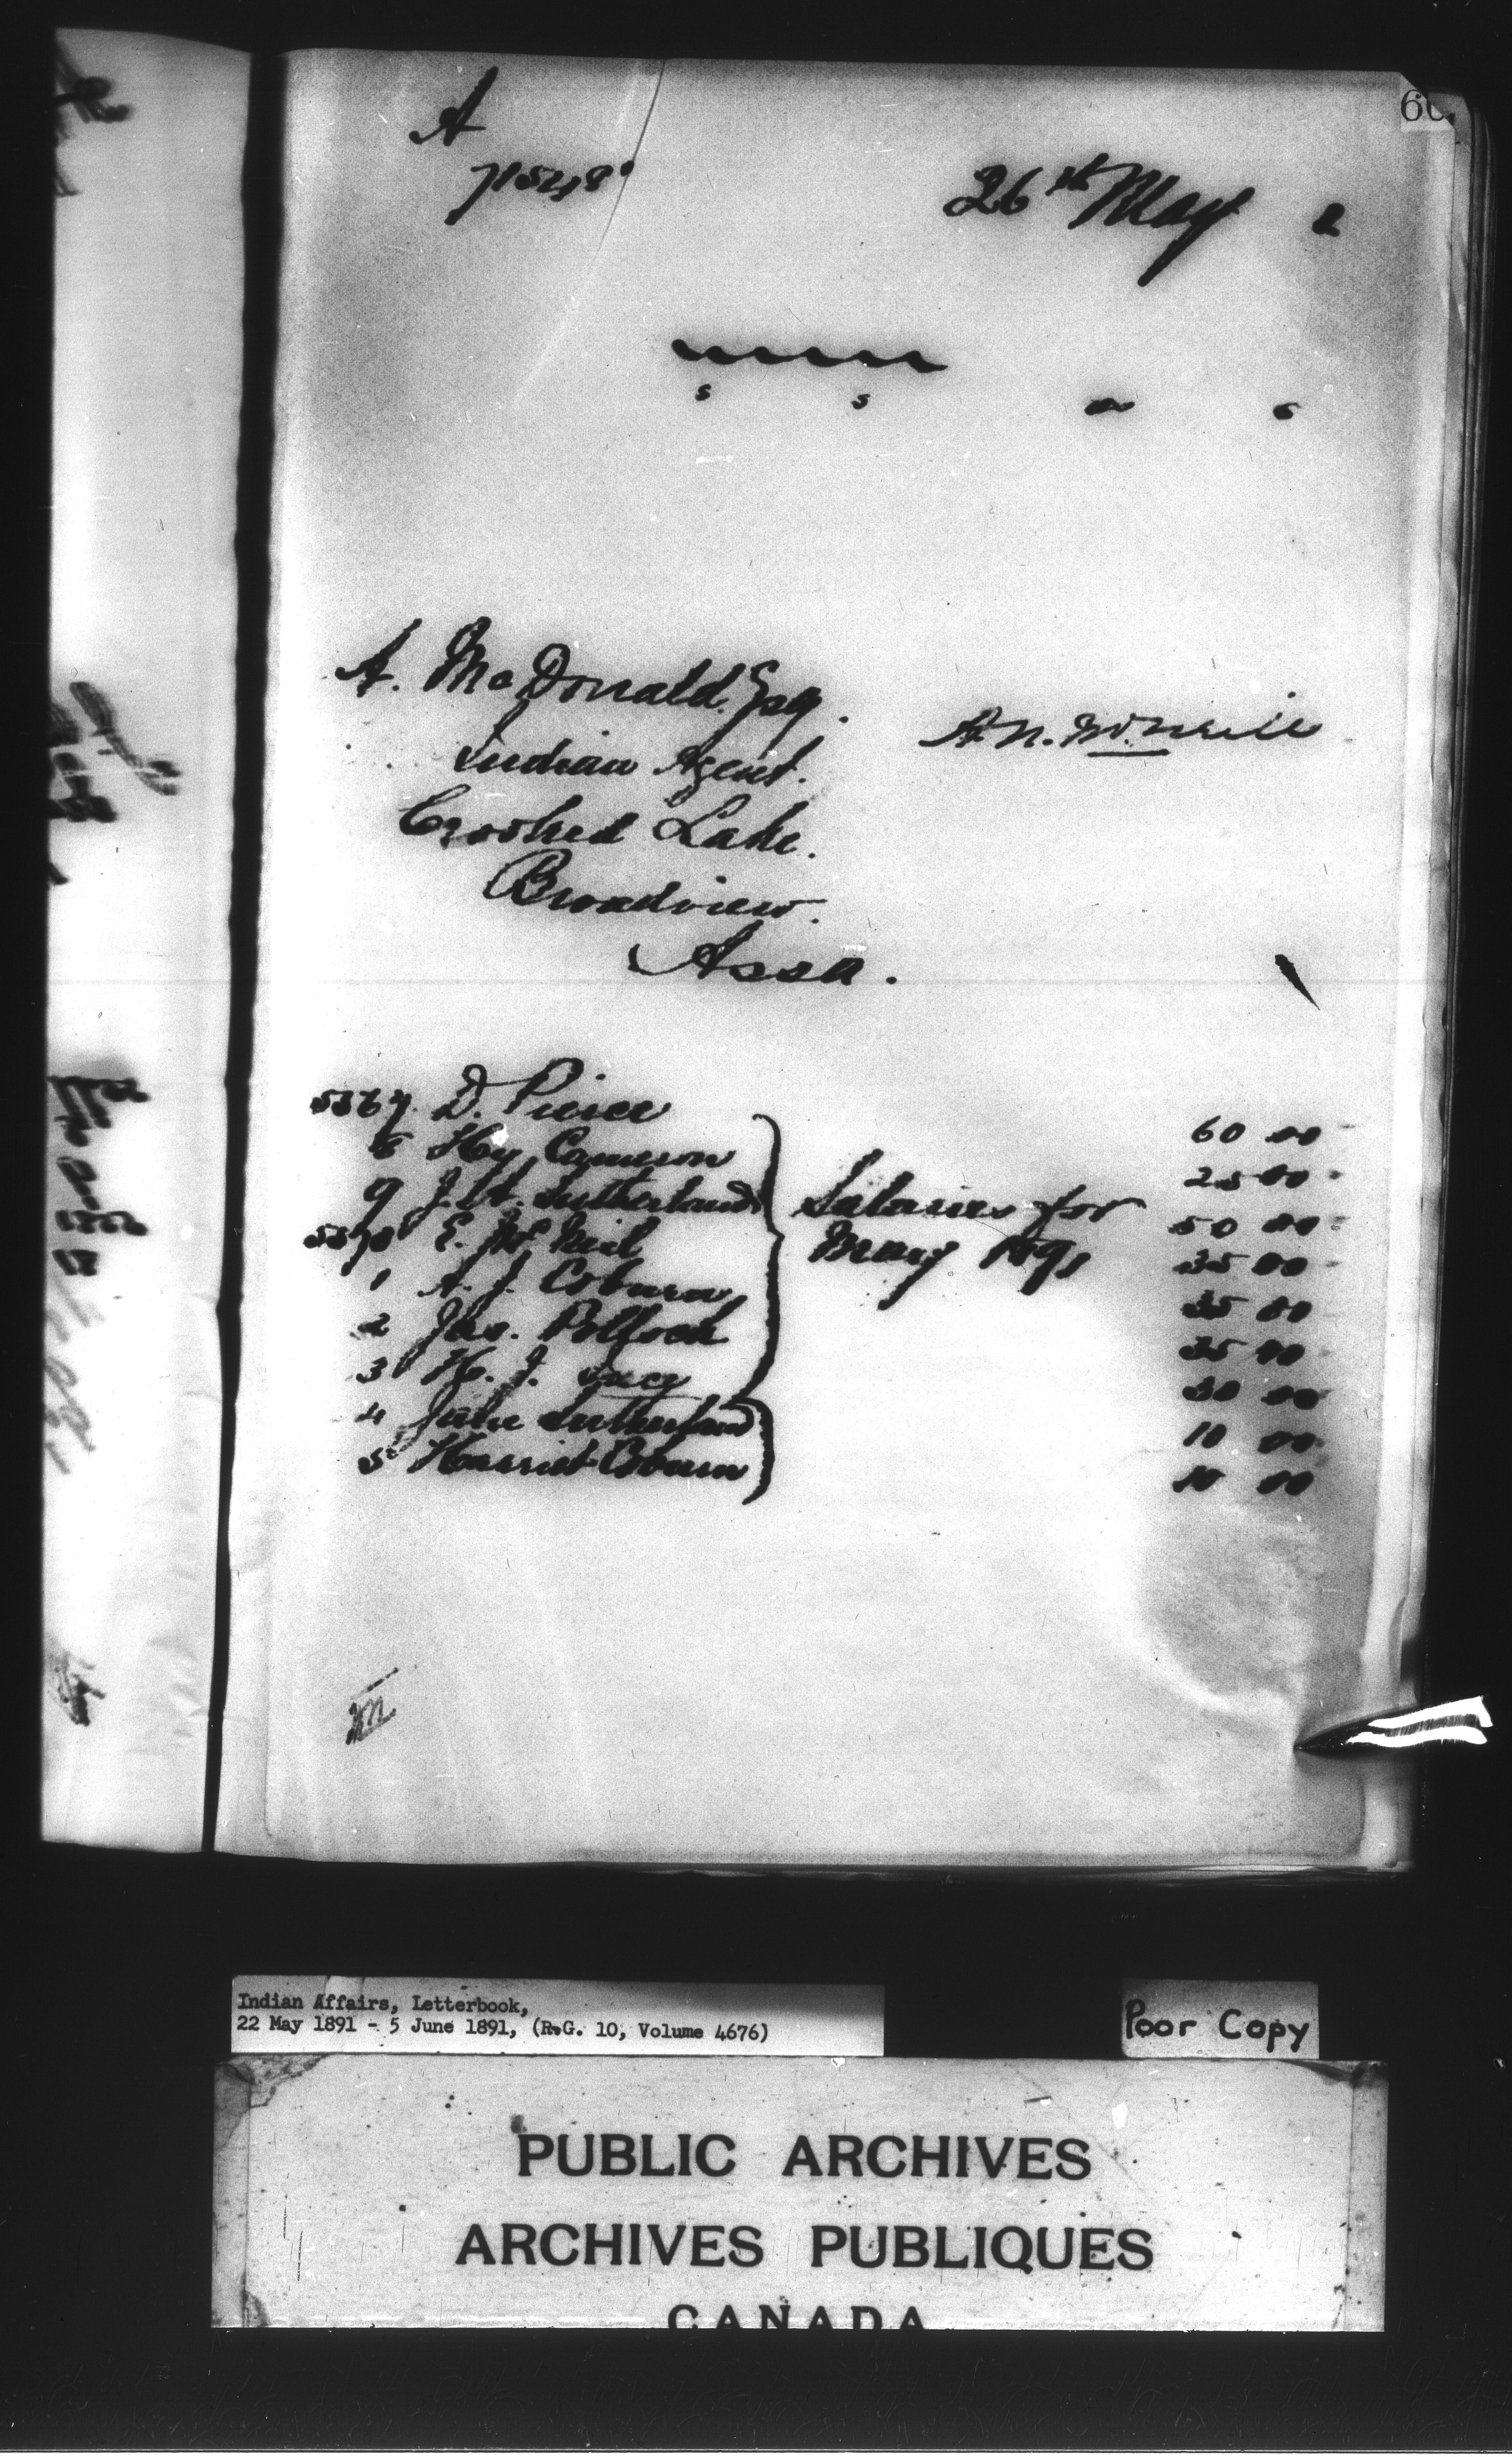 A
71548
26th May
A. McDonald Esq.
A. N. McNeill
Indian Agent.
Crooked Lake.
Broadview.
Assa.
D. Pierce 60 00
8 Hy Cameron 25 00
9 J. H. Sutherland 50 00
5570 E. McNeil 35 00
Salaries for
May 1891
1 A. J. Coburn 35 00
2 Jas. Pollock 35 00
3 H. J. 30 00
4 Sutherland 10 00
5 Harriet Coburn 10 00
Indian Affairs, Letterbook,
22 May 1891 - 5 June 1891, (R.G. 10, Volume 4676)
Poor Copy
PUBLIC ARCHIVES
ARCHIVES PUBLIQUES
CANADA